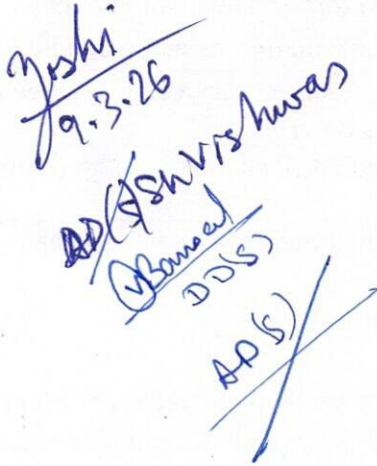 Joshi
9.3.26
AD(S) Sh Vishwas
Bansal
DD(S)
AD(S)